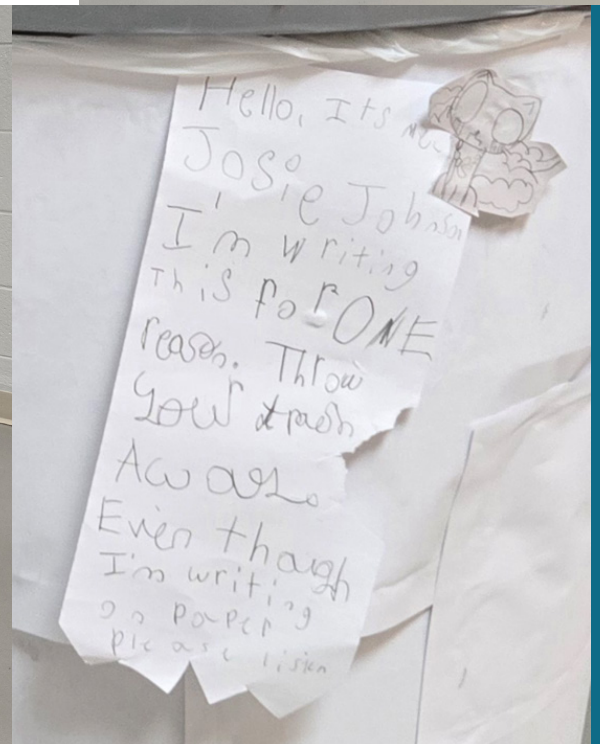 Hello, Its me
Josie Johnson
I'm writing
This for ONE
reason. Throw
your trash
Away.
Even though
I'm writing
on paper
please listen